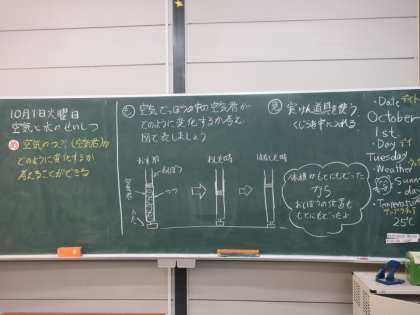 10月1日火曜日
空気と水のせいしつ
空気のつぶ(空気君)が
どのように変化するか
考えることができる
空気でっぽうの中の空気君が
どのように変化するか考え
図で表しましょう
おす前
おした時
はなした時
おしぼう
つつ
見
実けん道具を使う
くじらを中に入れる
体積がもとにもどった
なら
おしぼうの位置も
もとにもどったよ
・Date デイト
October
1st.
・Day デイ
Tuesday
・Weather
Sunny
・Temperature
25℃